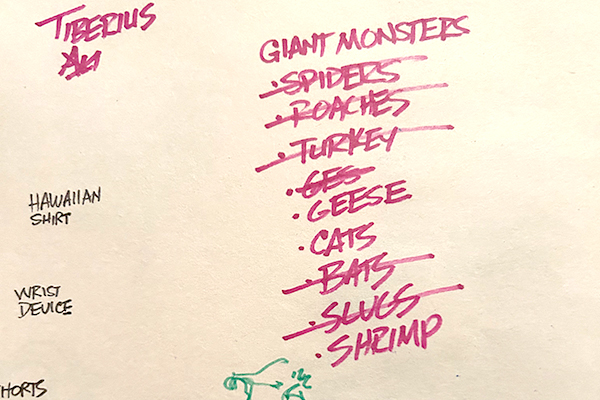 TIBERIUS
GIANT MONSTERS
· SPIDERS
· ROACHES
· TURKEY
· GES
· GEESE
· CATS
· BATS
· SLUGS
· SHRIMP
HAWAIIAN
SHIRT
WRIST
DEVICE
HORTS